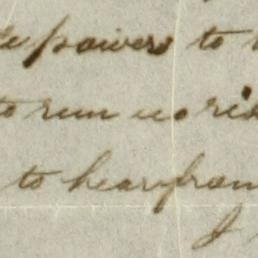 powers to
to run no ris
to hear from
J